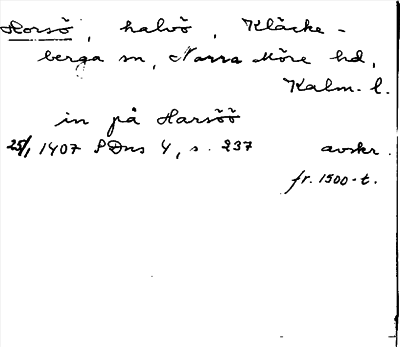 Horsö, halvö, Kläcke-
berga sn, Norra Möre hd,
Kalm. l.
in på Harsöö
25/1 1407 SDns 4, s. 237 avskr.
fr. 1500-t.